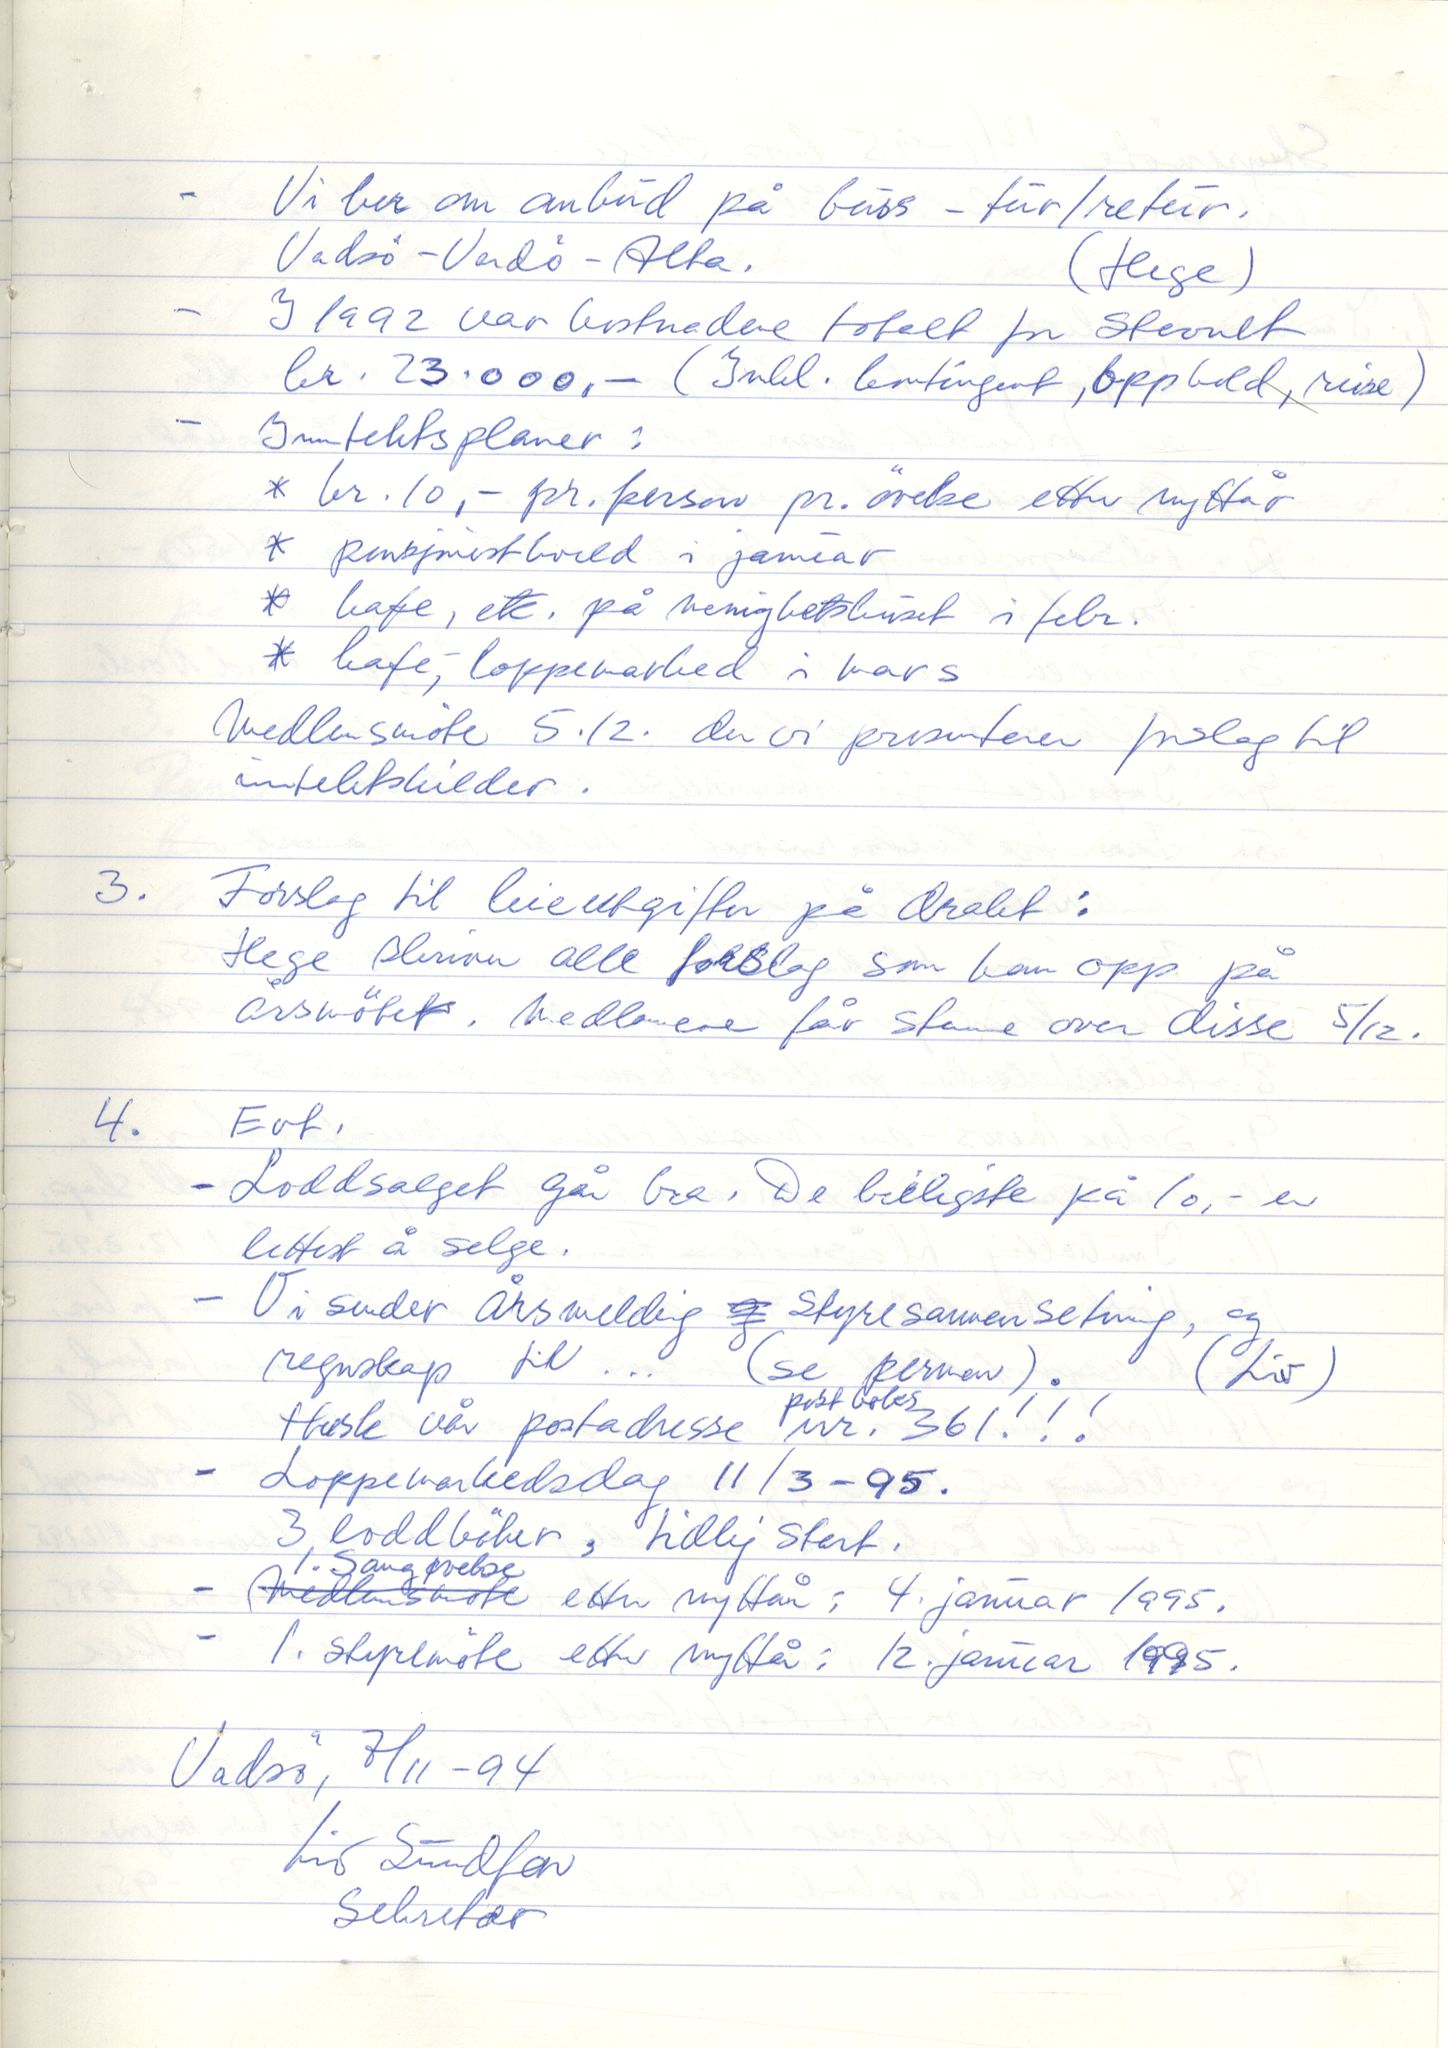 - Vi ber om anbud på buss - tur/retur.
Vadsö - Vardö - Alta. (Hege)
- I 1992 var kostnadene totalt for stevnet
kr. 23.000,- (Inkl. kontingent, opphold, reise)
- Inntektsplaner:
* kr. 10,- pr. person pr. övelse etter nyttår
* pensjonistkveld i januar
* kafe, etc. på menighetshuset i febr.
* kafe, loppemarked i mars
Medlemsmöte 5.12. der vi presenterer forslag til
inntektskilder.
3. Forslag til leieutgifter på drakt:
Hege skriver alle forslag som kom opp på
årsmötet. Medlemene får stemme over disse 5/12.
4. Evt.
- Loddsalget går bra. De billigste på 10,- er
lettest å selge.
- Vi sender årsmelding og styresammensetning, og
regnskap til ... (se permen). (Liv)
Husk vår postadresse postboks nr. 361!!!
- Loppemarkedsdag 11/3-95.
3 loddböker, tidlig start.
1. Sangøvelse
- Medlemsmöte etter nyttår: 4. januar 1995.
- 1. styremöte etter nyttår: 12. januar 1995.
Vadsö, 7/11-94
Liv
Sekretær